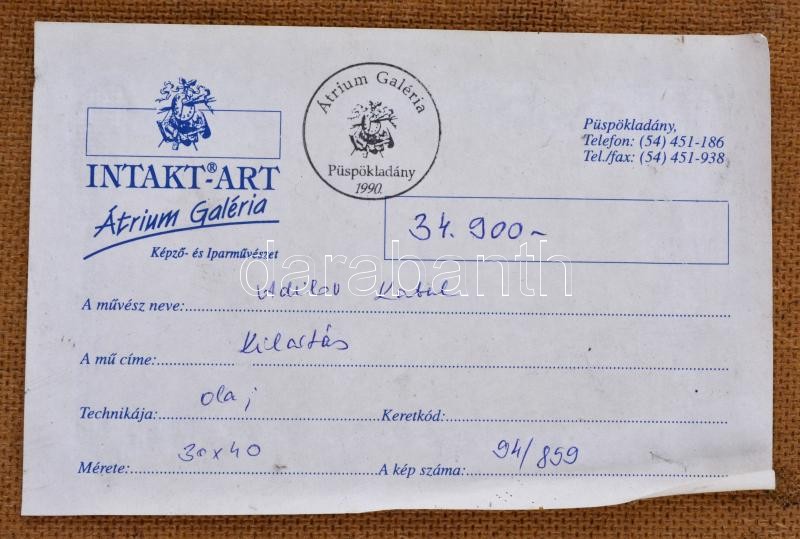 INTAKT®-ART
Átrium Galéria
Képző- és Iparművészet
Átrium Galéria
Püspökladány
1990.
Püspökladány,
Telefon: (54) 451-186
Tel./fax: (54) 451-938
34.900-
darabanth
A művész neve: Adilov Kabul
A mű címe: Kilartás
Technikája: olaj
Keretkód:
Mérete: 30x40
A kép száma: 94/859